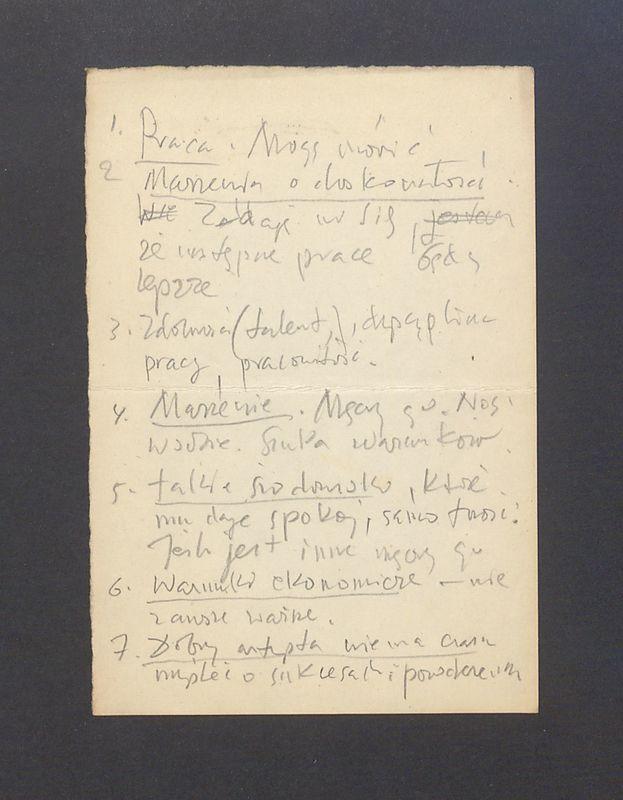 1. Praca. Mogę mówić
2 Marzenia o doskonałości.
Zdaje mi się,
że następne prace będą
lepsze
3. Zdolności (talent,), dyscyplina
pracy, pracowitość.
4. Marzenie. Męczy go. Nosi
wszędzie. Szuka warunków.
5. takie środowisko, które
mu daje spokój, samotność.
Jeśli jest inne męczy go
6. Warunki ekonomiczne – nie
zawsze ważne.
7. Dobry artysta nie ma czasu
myśleć o sukcesach i powodzeniu